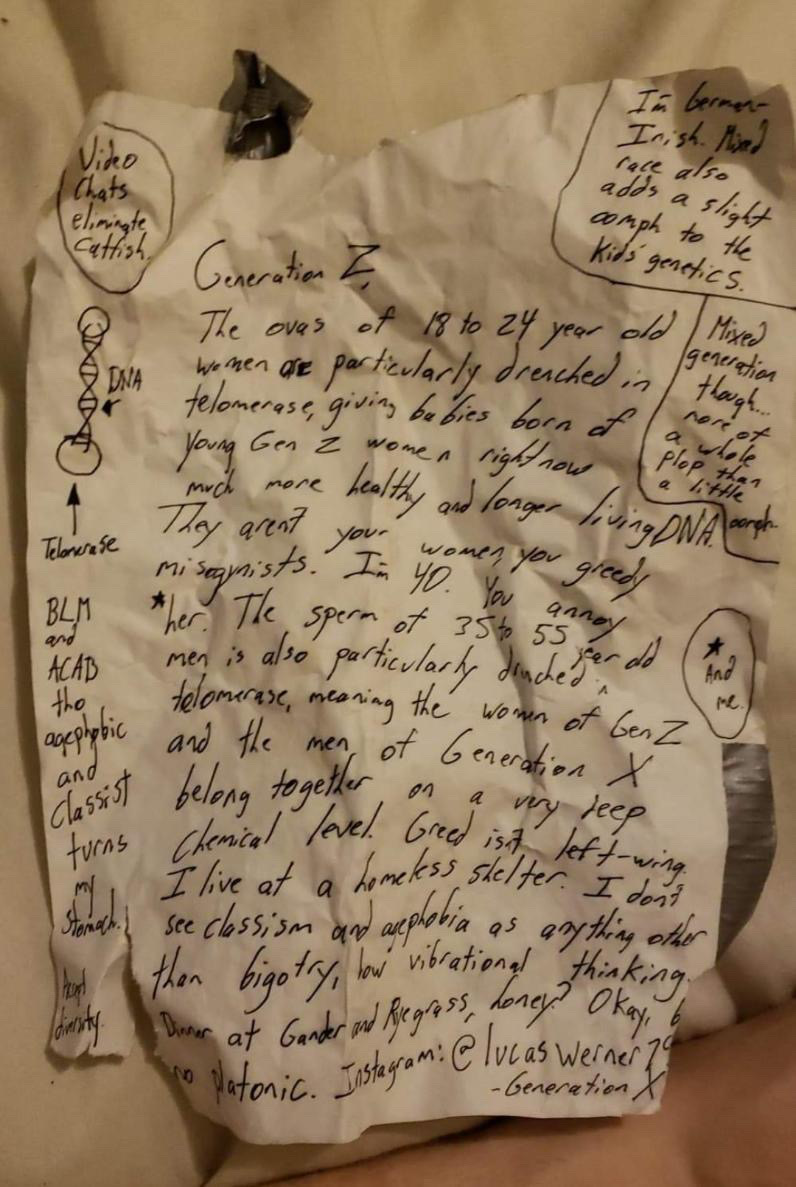 Video
Chats
eliminate
Catfish.
I'm German-
Irish. Mixed
race also
adds a slight
oomph to the
Kids' genetics.
Mixed
generation
though...
more of
a whole
plop than
a little
oomph.
Generation Z,
The ovas of 18 to 24 year old
women are particularly drenched in
telomerase, giving babies born of
young Gen Z women right now
much more healthy and longer living DNA.
They aren't your women, you greedy
misogynists. I'm 40. You annoy
*her. The sperm of 35 to 55 year old
men is also particularly drenched ^
telomerase, meaning the women of Gen Z
and the men of Generation X
belong together on a very deep
chemical level. Greed isn't left-wing.
I live at a homeless shelter. I don't
see classism and agephobia as anything other
than bigotry, low vibrational thinking.
Dinner at Gander and Ryegrass, honey? Okay, b
no platonic. Instagram: @lucaswerner7
-Generation X
DNA
Telomerase
BLM
and
ACAB
tho
agephobic
and
classist
turns
my
stomach.
Accept
diversity.
*
And
me.